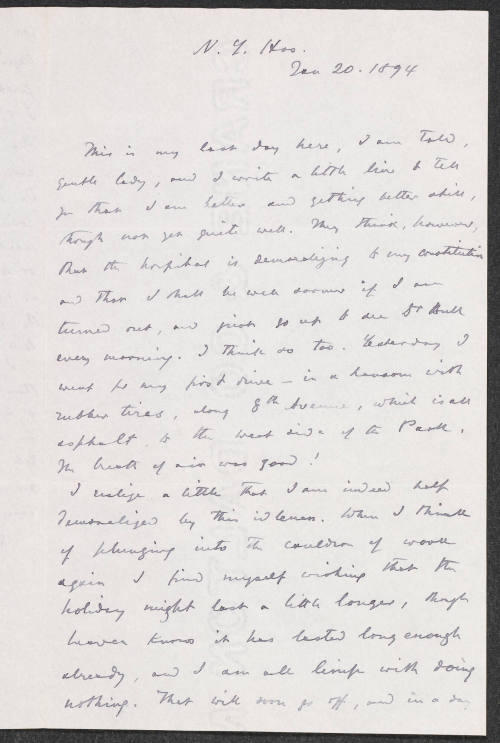 N. Y. Hos.
Jan 20. 1894
This is my last day here, I am told,
gentle lady, and I write a little line to tell
you that I am better and getting better still,
though not yet quite well. They think, however,
that the hospital is demoralizing to my constitution
and that I shall be well sooner if I am
turned out, and just go up to see Dr Bull
every morning. I think so too. Yesterday I
went for my first drive – in a hansom with
rubber tires, along 8th Avenue, which is all
asphalt, to the west side of the Park.
The breath of air was good!
I realize a little that I am indeed half
demoralized by this idleness. When I think
of plunging into the cauldron of work
again I find myself wishing that the
holiday might last a little longer, though
heaven knows it has lasted long enough
already, and I am all limp with doing
nothing. That will soon go off, and in a day